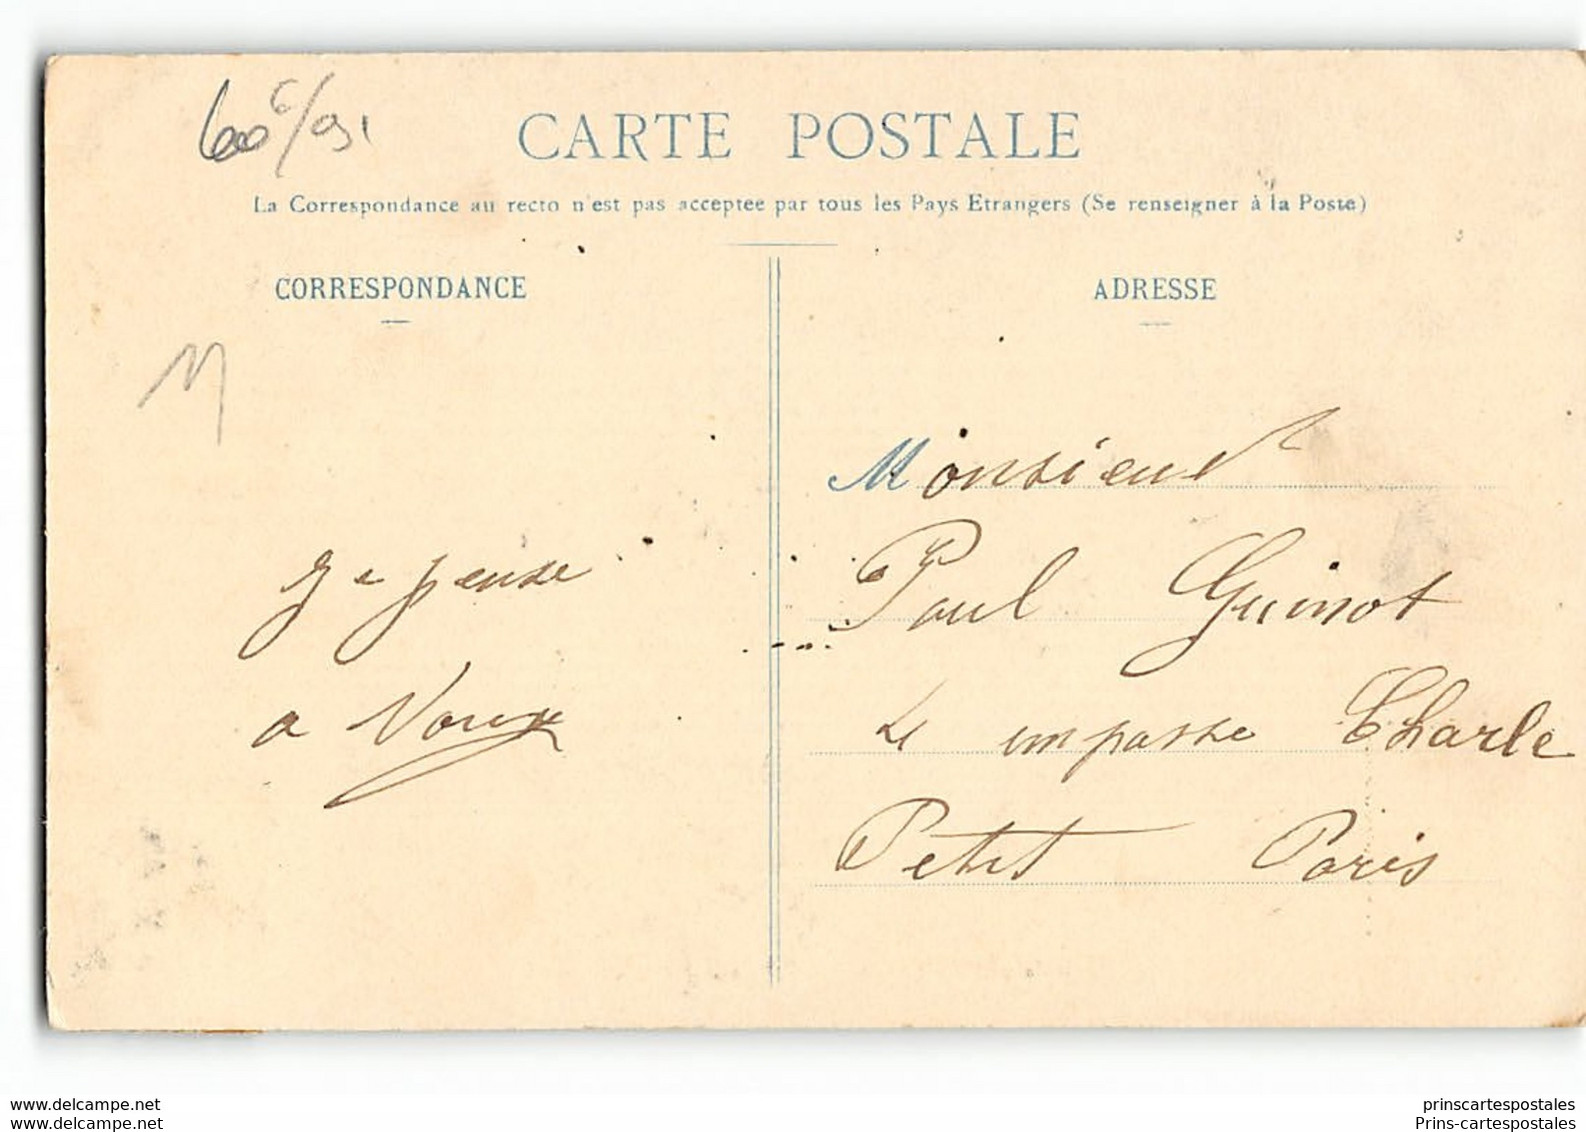 600€/091
CARTE POSTALE
La Correspondance au recto n'est pas acceptée par tous les Pays Etrangers (Se renseigner à la Poste)
CORRESPONDANCE
M
Je pense
a Vous
ADRESSE
Monsieur
Paul Guinot
impasse Charle
Petit Paris
www.delcampe.net
www.delcampe.net
prinscartespostales
Prins-cartespostales